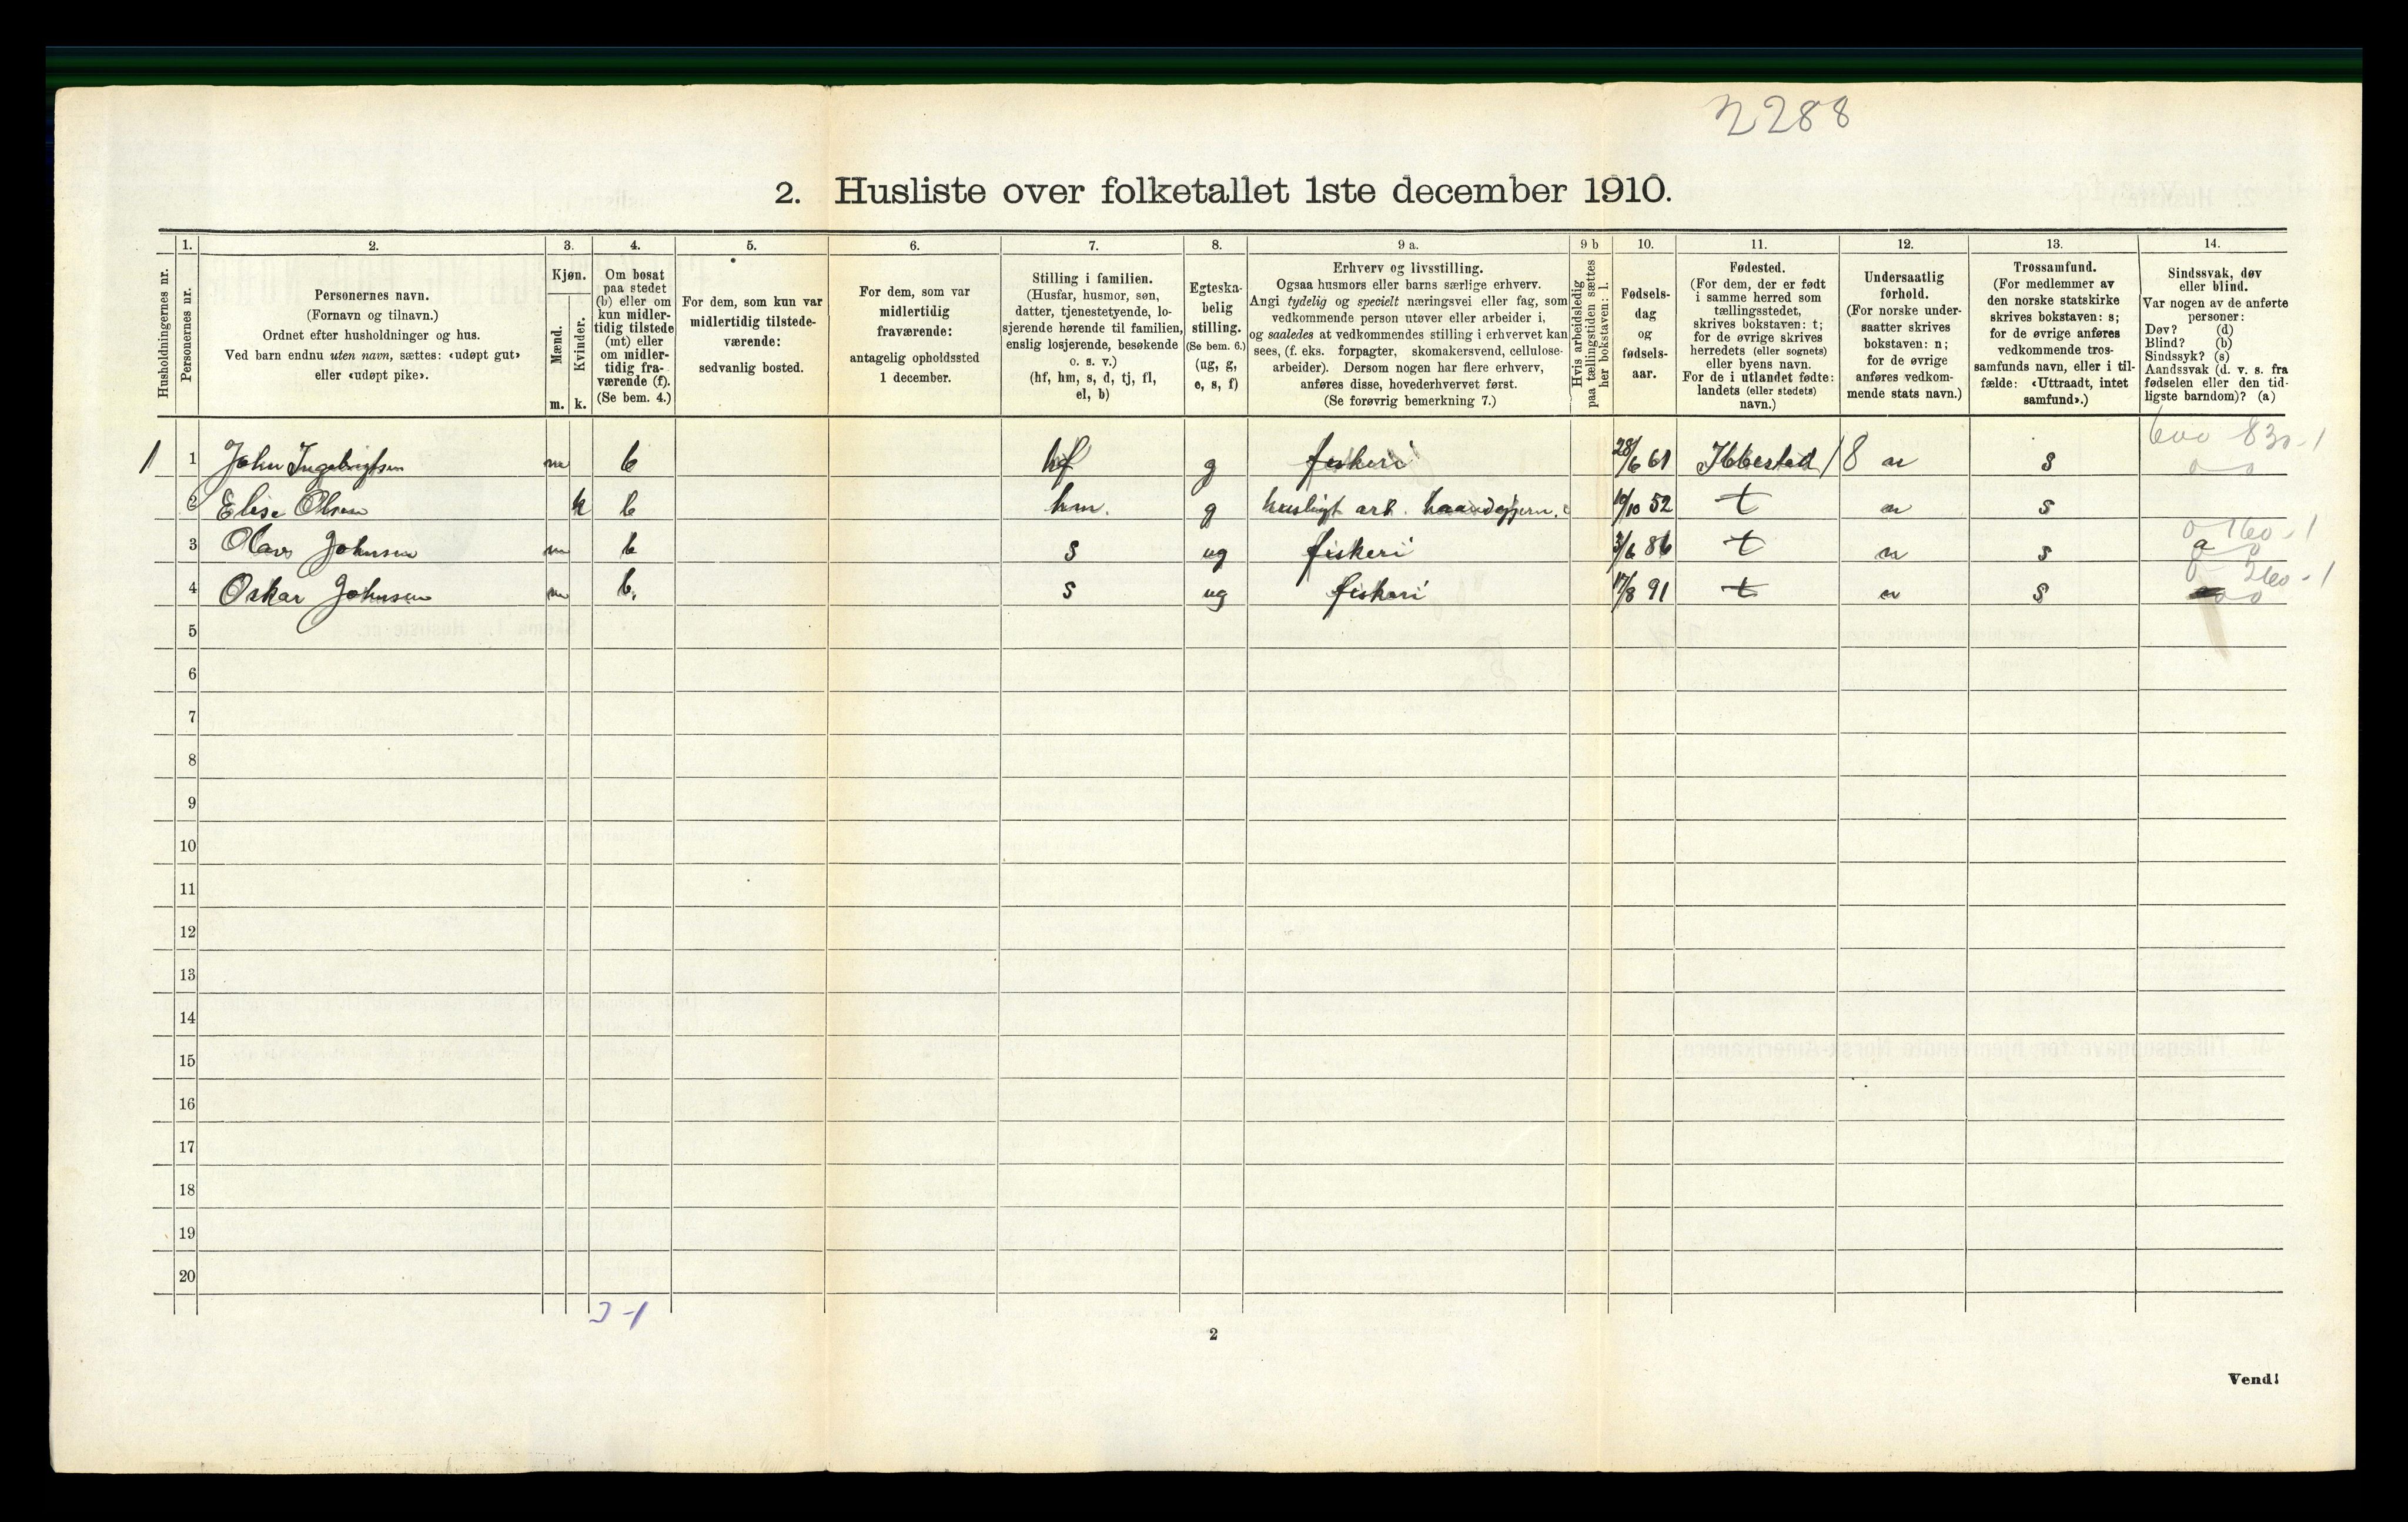 2288
2. Husliste over folketallet 1ste december 1910.
Husholdningernes nr.
1.
Personernes nr.
2.
Personernes navn.
(Fornavn og tilnavn.)
Ordnet efter husholdninger og hus.
Ved barn endnu uten navn, sættes: «udøpt gut»
eller «udøpt pike».
3.
Kjøn.
Mænd.
Kvinder.
m. k.
4.
Om bosat
paa stedet
(b) eller om
kun midler-
tidig tilstede
(mt) eller
om midler-
tidig fra-
værende (f).
(Se bem. 4.)
5.
For dem, som kun var
midlertidig tilstede-
værende:
sedvanlig bosted.
6.
For dem, som var
midlertidig
fraværende:
antagelig opholdssted
1 december.
7.
Stilling i familien.
(Husfar, husmor, søn,
datter, tjenestetyende, lo-
sjerende hørende til familien,
enslig losjerende, besøkende
o. s. v.)
(hf, hm, s, d, tj, fl,
el, b)
8.
Egteska-
belig
stilling.
(Se bem. 6.)
(ug, g,
e, s, f)
9 a.
Erhverv og livsstilling.
Ogsaa husmors eller barns særlige erhverv.
Angi tydelig og specielt næringsvei eller fag, som
vedkommende person utøver eller arbeider i,
og saaledes at vedkommendes stilling i erhvervet kan
sees, (f. eks. forpagter, skomakersvend, cellulose-
arbeider). Dersom nogen har flere erhverv,
anføres disse, hovederhvervet først.
(Se forøvrig bemerkning 7.)
9 b
Hvis arbeidsledig
paa tællingstiden sættes
her bokstaven: l.
10.
Fødsels-
dag
og
fødsels-
aar.
11.
Fødested.
(For dem, der er født
i samme herred som
tællingsstedet,
skrives bokstaven: t;
for de øvrige skrives
herredets (eller sognets)
eller byens navn.
For de i utlandet fødte:
landets (eller stedets)
navn.)
12.
Undersaatlig
forhold.
(For norske under-
saatter skrives
bokstaven: n;
for de øvrige
anføres vedkom-
mende stats navn.)
13.
Trossamfund.
(For medlemmer av
den norske statskirke
skrives bokstaven: s;
for de øvrige anføres
vedkommende tros-
samfunds navn, eller i til-
fælde: «Uttraadt, intet
samfund».)
14.
Sindssvak, døv
eller blind.
Var nogen av de anførte
personer:
Døv? (d)
Blind? (b)
Sindssyk? (s)
Aandssvak (d. v. s. fra
fødselen eller den tid-
ligste barndom)? (a)
600 830-1
1 1 John Ingebrigtsen m b hf g fiskeri 28/6 61 Ibbestad / 8 n s
2 Elise Olsen k b hm. g husligt arb. 19/10 52 t n s
0 160-1
3 Olavs Johnsen m b s ug fiskeri 3/6 86 t n s a
0 260-1
4 Oskar Johnsen m b. s ug fiskeri 17/8 91 t n s
5
6
7
8
9
10
11
12
13
14
15
16
17
18
19
20
3-1
2
Vend!